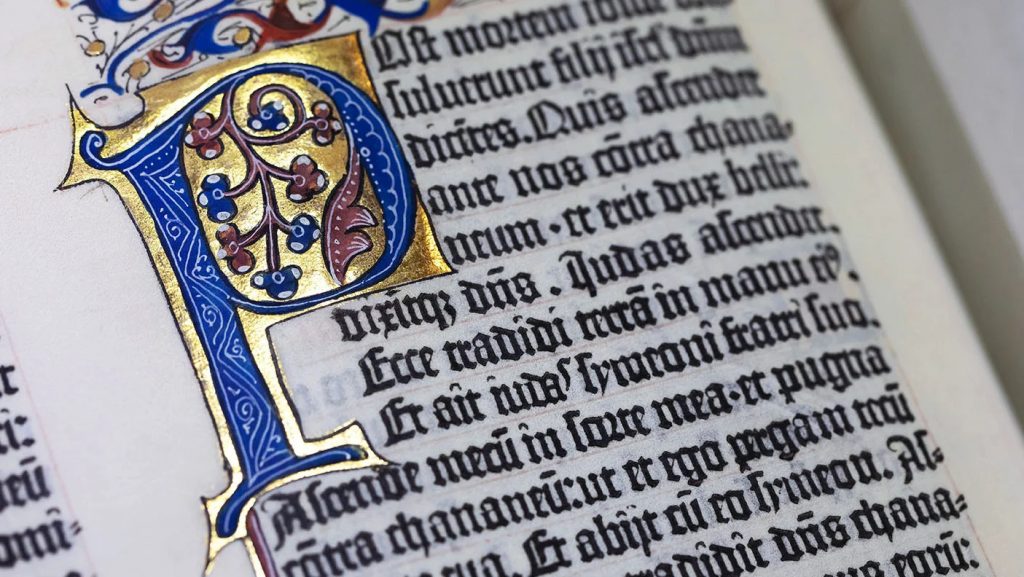 Post mortem iosue
suluerunt filij isrl' dñm
dicētes. Quis ascendet
ante nos cōtra chana=
neum · et erit dux belli:
dixitqꝫ dñs. Judas ascendet.
Ecce tradidi terrā in manu eiꝰ.
Et ait iudas symeoni fratri suo.
Ascende mecū in sorte mea · et pugna
cōtra chananeū: ut et ego pergam tecū
Et abijt cū eo symeon. As=
tradidit dñs chana=
eorū: